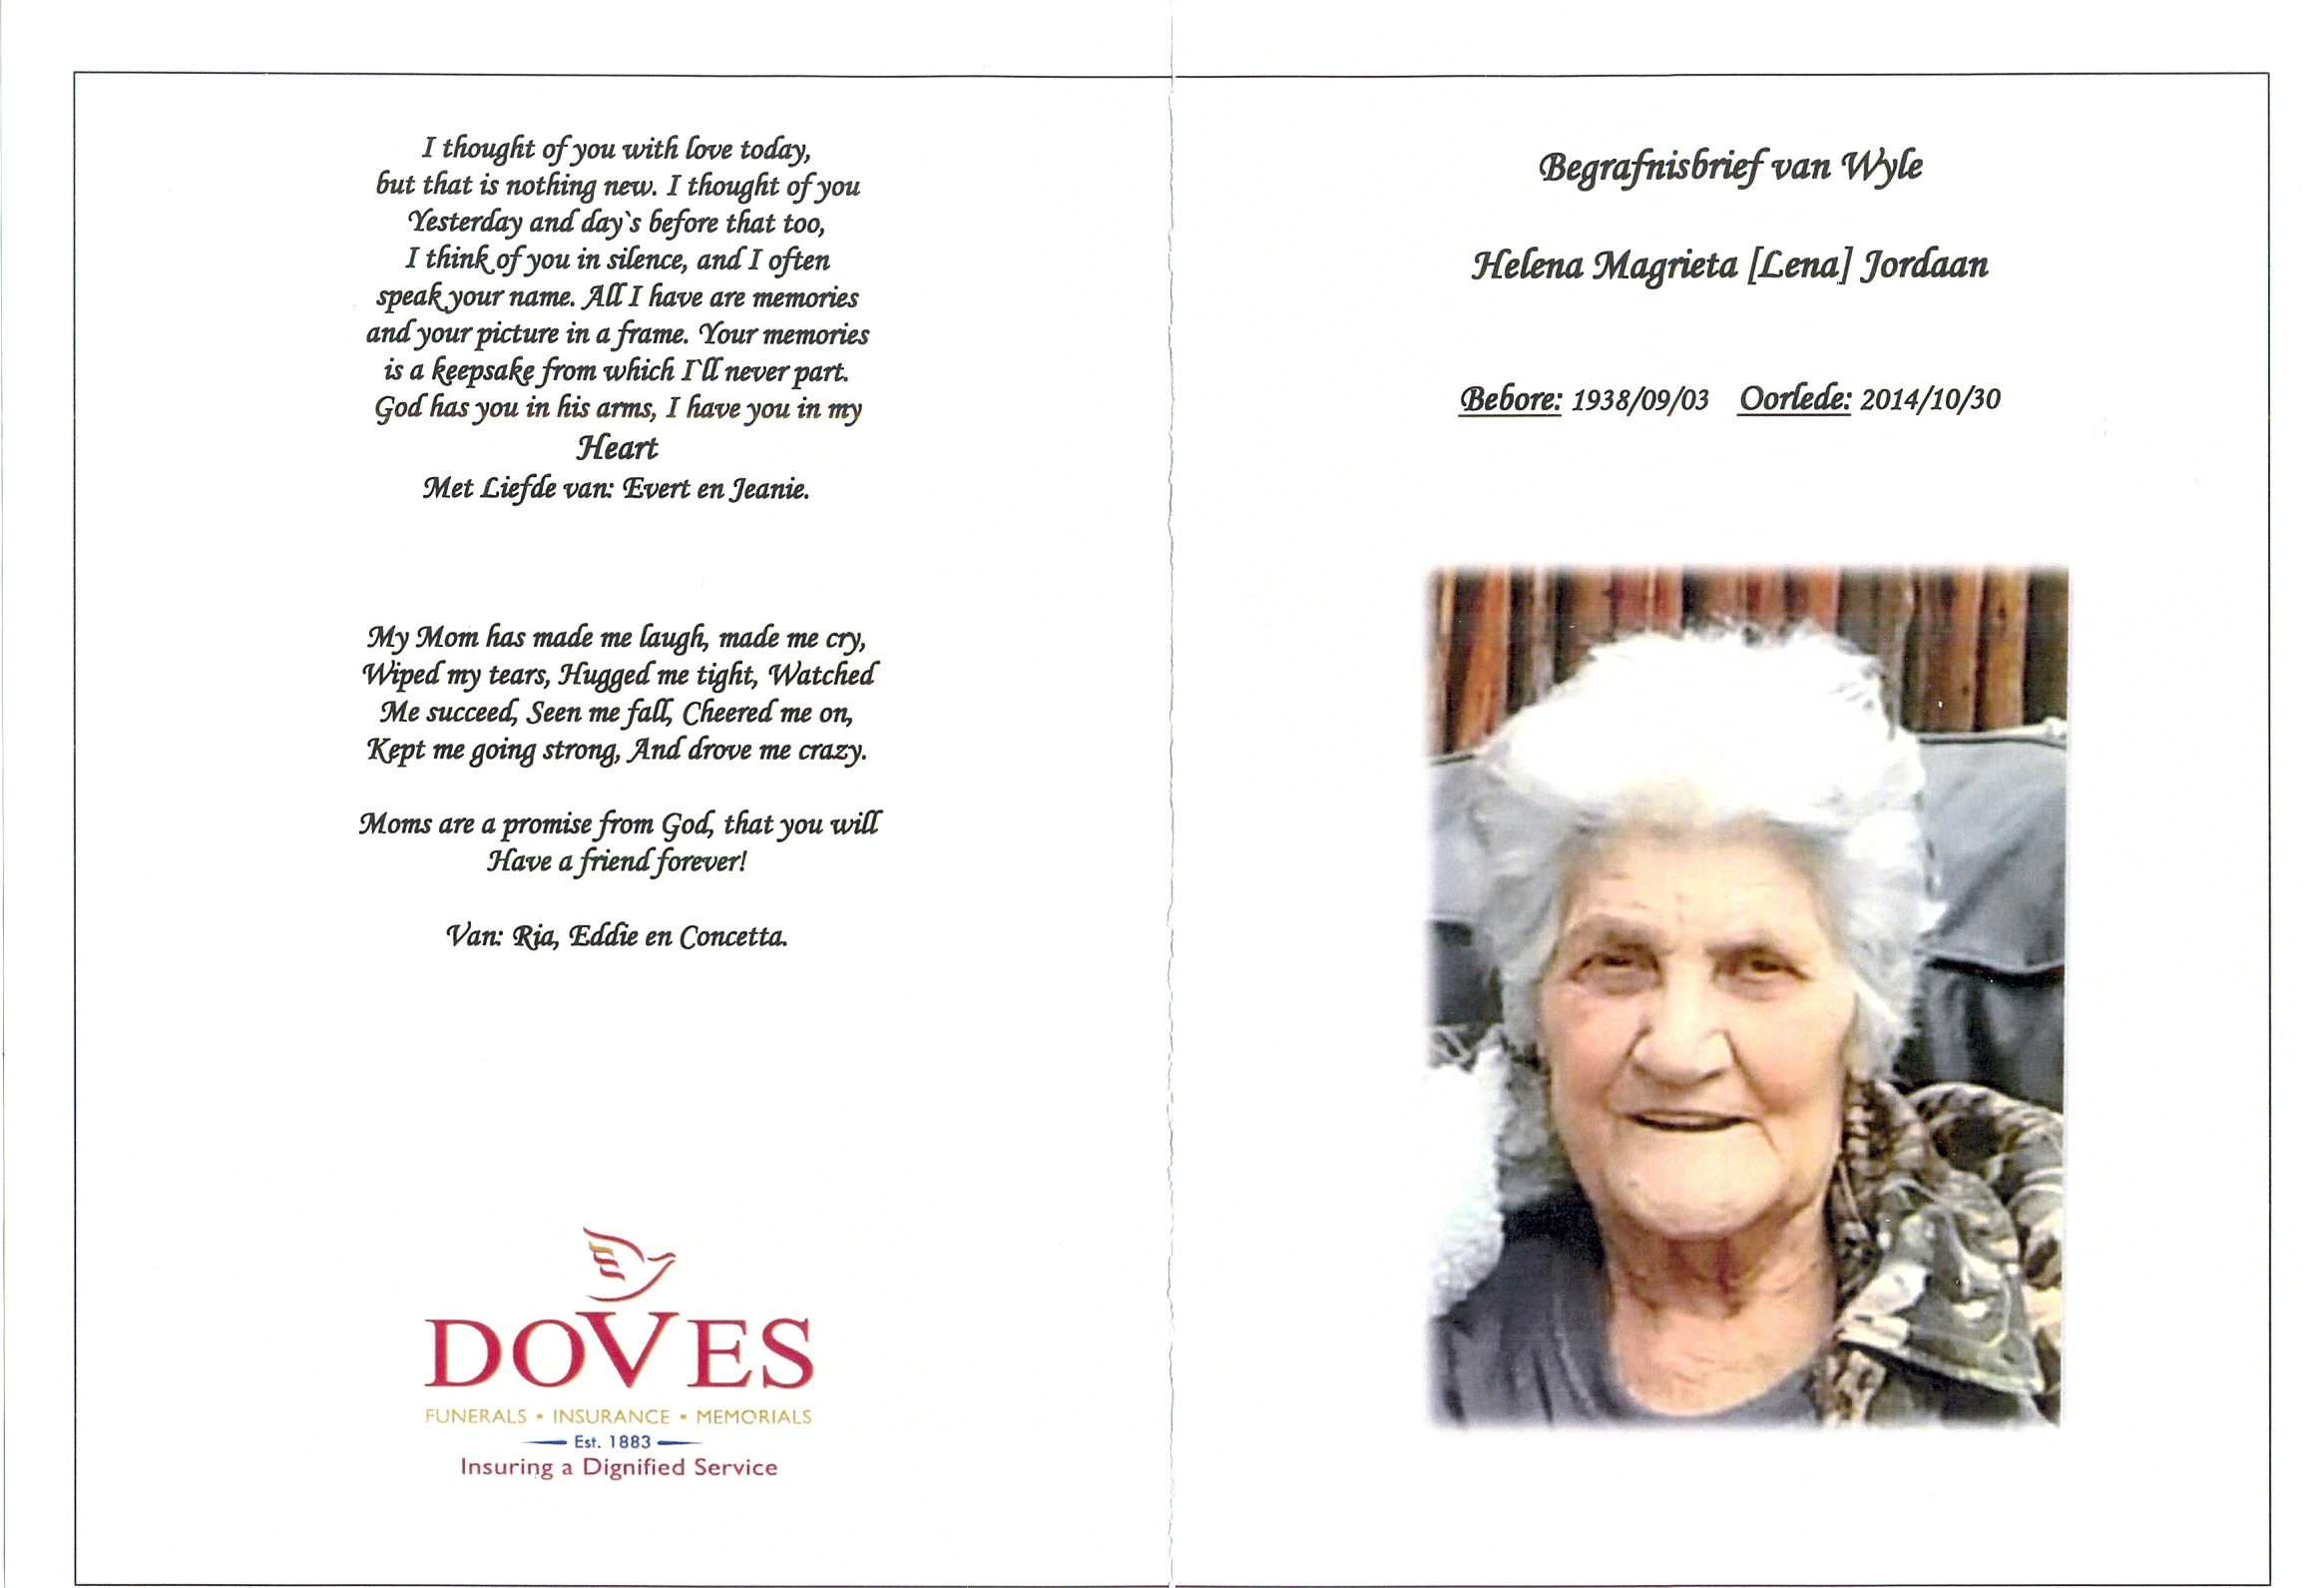 I thought of you with love today,
but that is nothing new. I thought of you
Yesterday and day`s before that too,
I think of you in silence, and I often
speak your name. All I have are memories
and your picture in a frame. Your memories
is a keepsake from which I`ll never part.
God has you in his arms, I have you in my
Heart
Met Liefde van: Evert en Jeanie.
My Mom has made me laugh, made me cry,
Wiped my tears, Hugged me tight, Watched
Me succeed, Seen me fall, Cheered me on,
Kept me going strong, And drove me crazy.
Moms are a promise from God, that you will
Have a friend forever!
Van: Ria, Eddie en Concetta.
DOVES
FUNERALS • INSURANCE • MEMORIALS
Est. 1883
Insuring a Dignified Service
Begrafnisbrief van Wyle
Helena Magrieta [Lena] Jordaan
Bebore: 1938/09/03 Oorlede: 2014/10/30